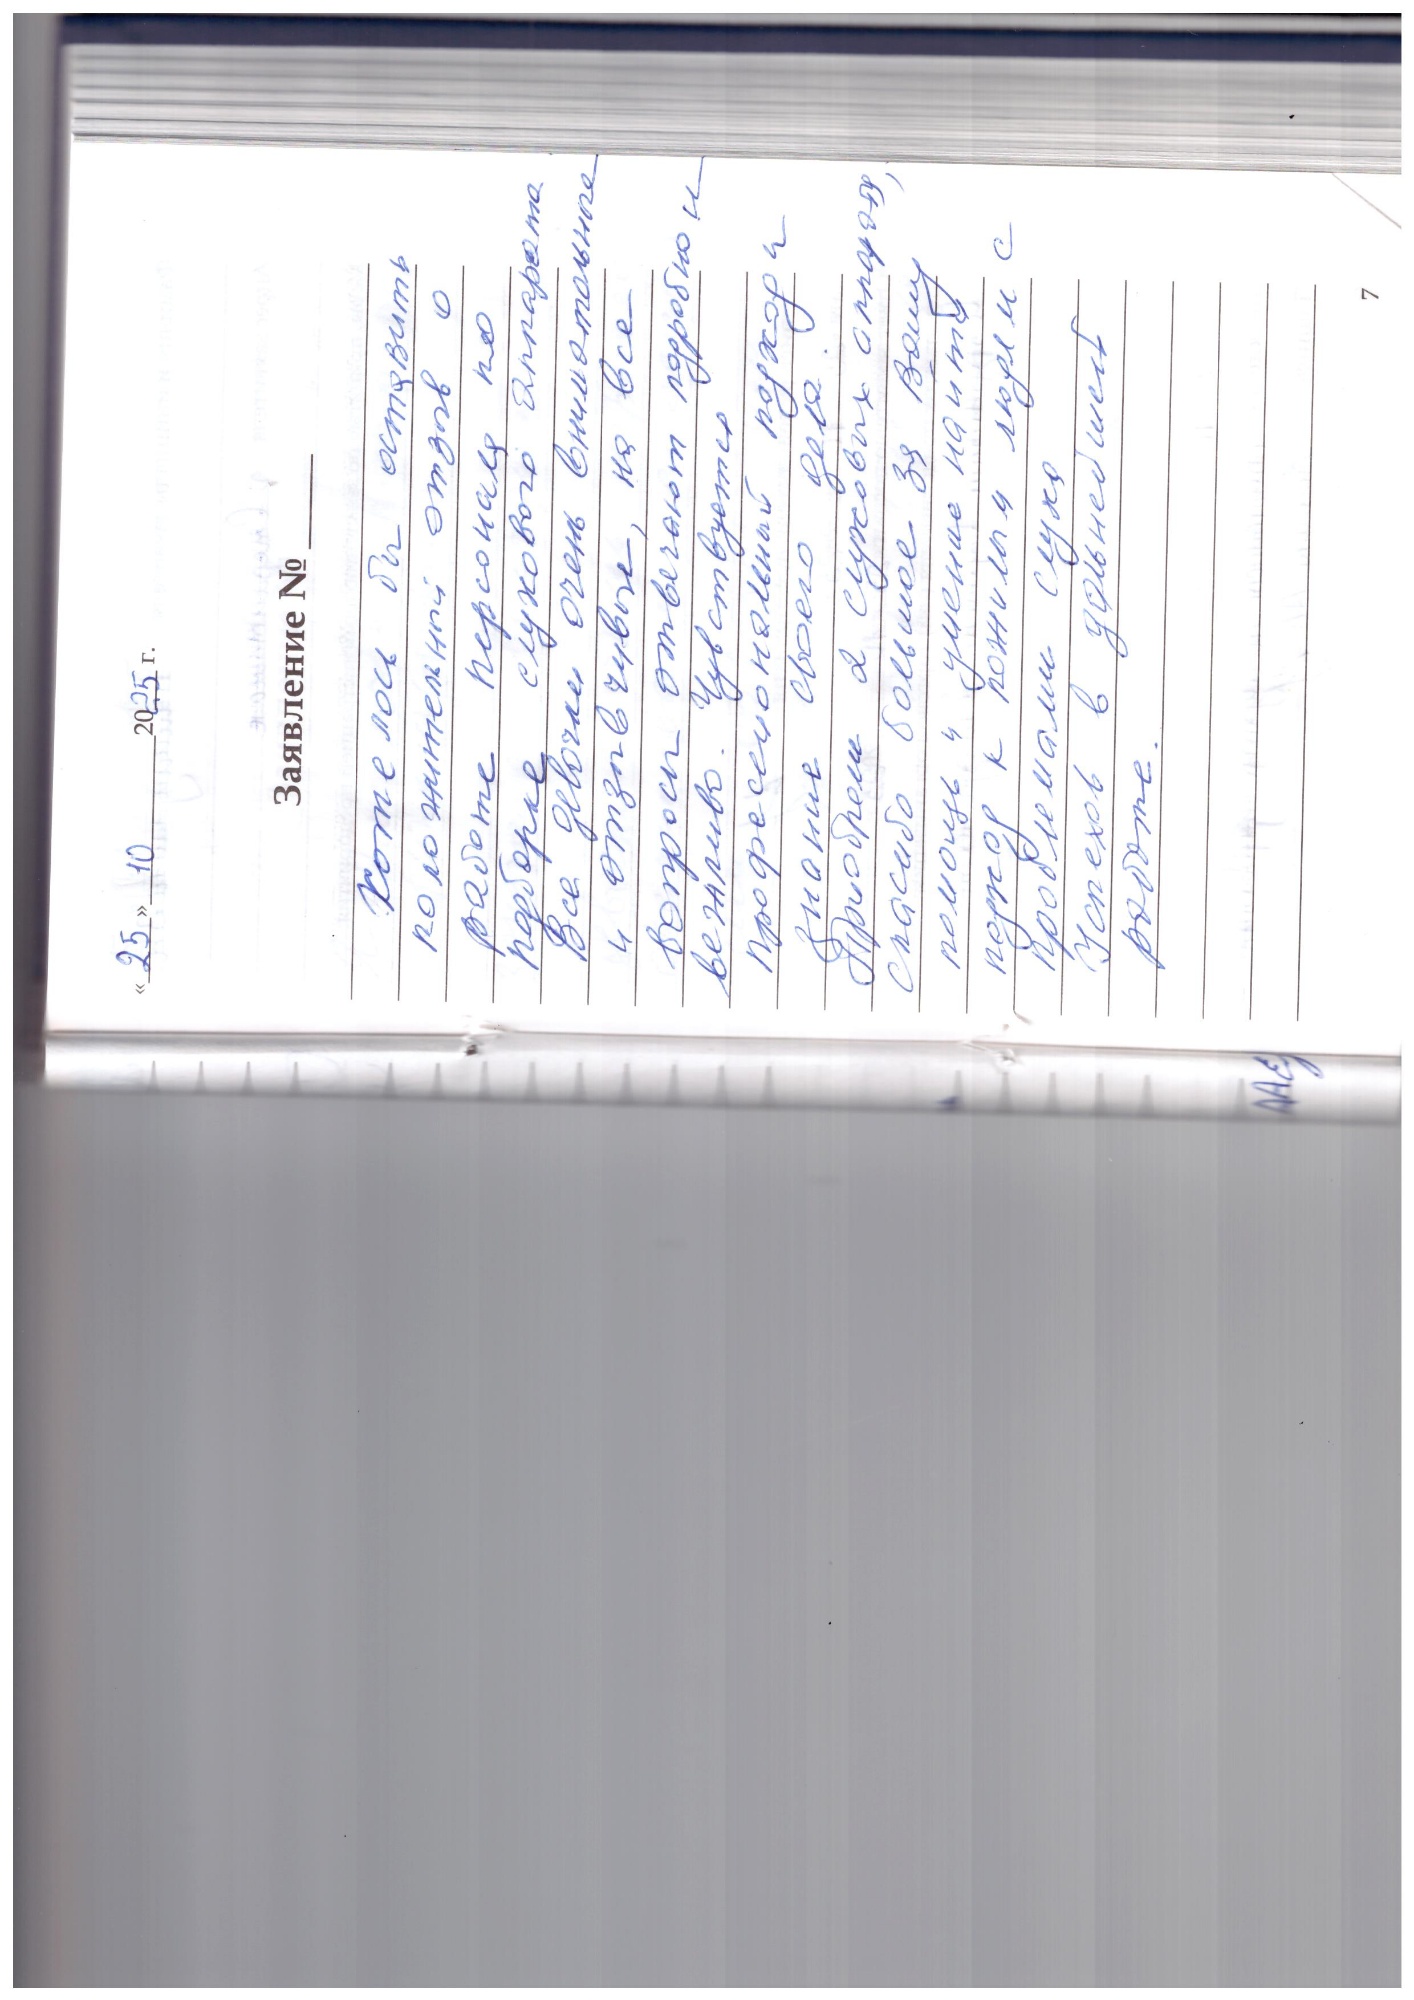 «25» 10 2025 г.
Заявление № 
Хотелось бы оставить
положительный отзыв о
работе персонала по
подборке слухового аппарата
Все девочки очень внимательные
и отзывчивые, на все
вопросы отвечают подробно и
вежливо. Чувствуется
профессиональный подход и
знание своего дела.
Приобрели 2 слуховых аппарата,
спасибо большое за вашу
помощь и умение найти
подход к пожилым людям с
проблемами слуха
Успехов в дальнейшей
работе.
7